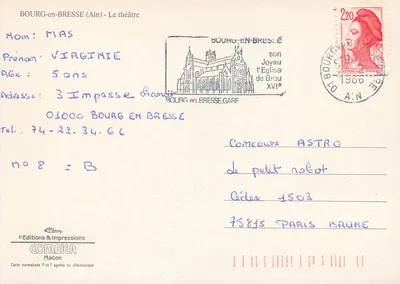 BOURG-en-BRESSE (Ain) - Le théâtre
Nom: MAS
Prénom: VIRGINIE
Age: 5 ans
Adresse: 3 Impasse
01000 BOURG EN BRESSE
Tel: 74-22-34-66
n° 8 = B
BOURG-EN-BRESSE
son
Joyau
l'Eglise
de Brou
XVIe
BOURG en BRESSE GARE
2,20
01 BOURG
1986
AIN
CONCOURS ASTRO
Le petit robot
Cédex 1503
75815 PARIS BRUNE
Editions & Impressions
COMBIER
Macon